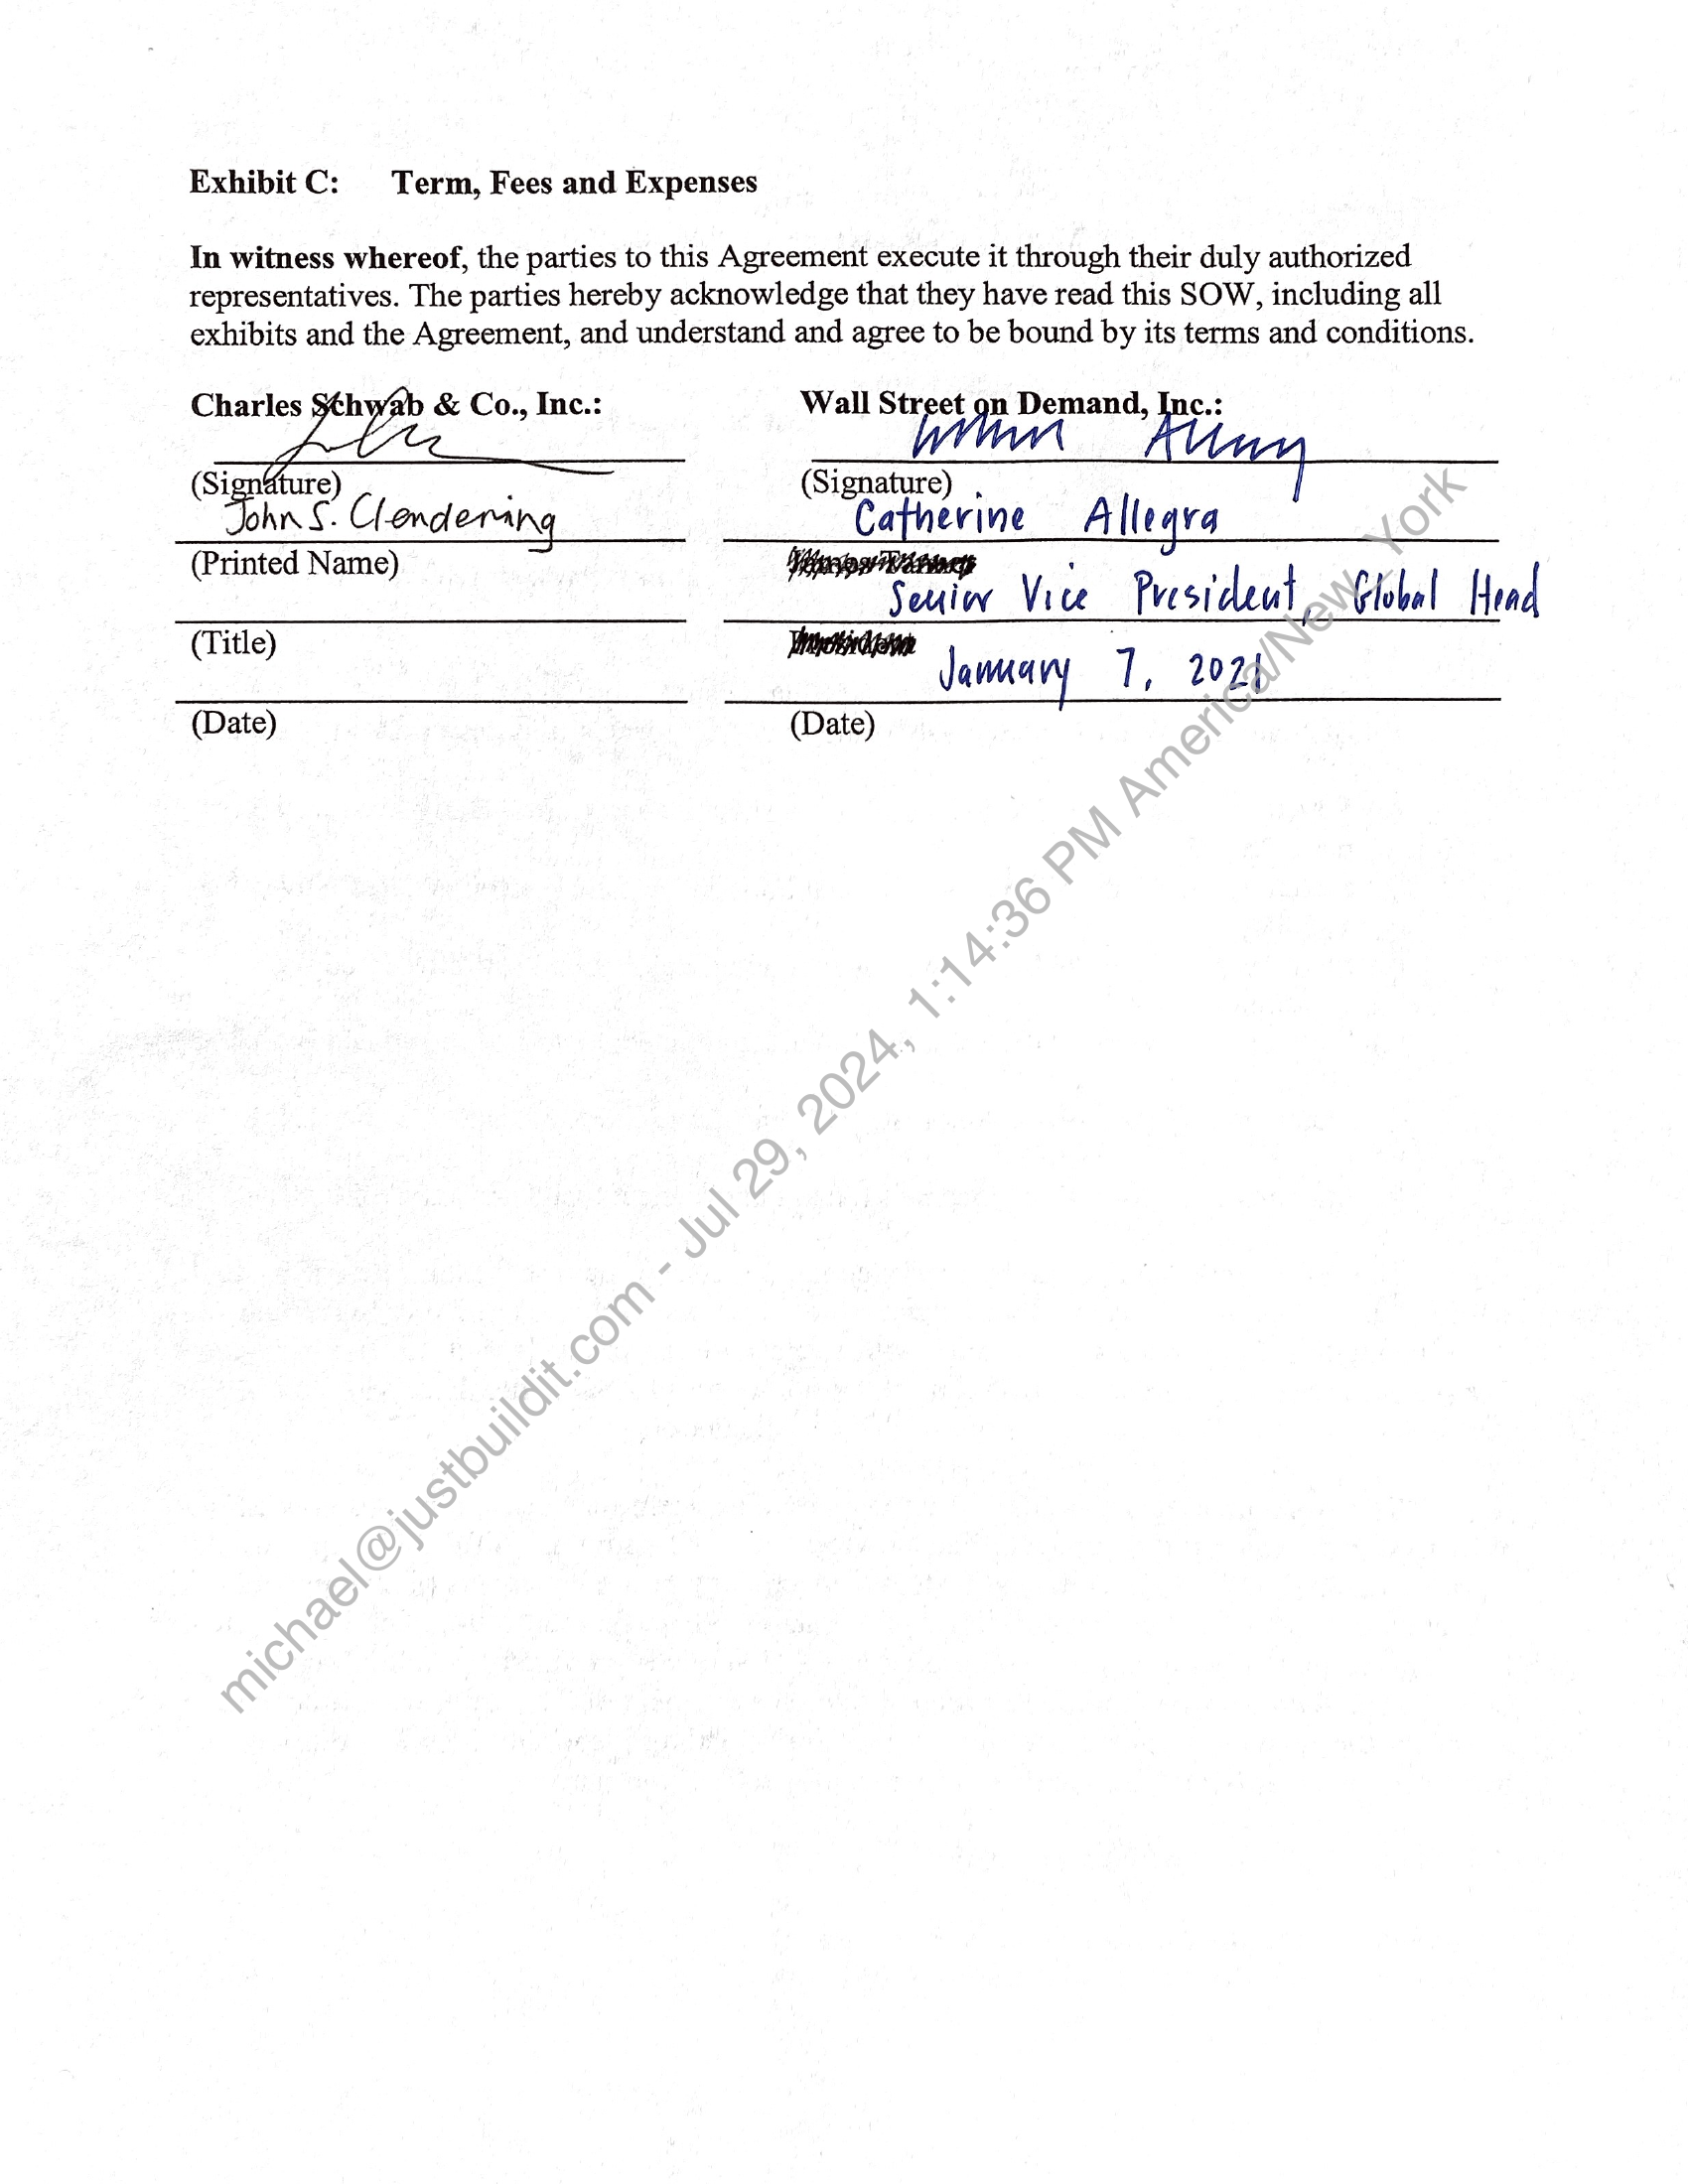 Exhibit C: Term, Fees and Expenses
In witness whereof, the parties to this Agreement execute it through their duly authorized
representatives. The parties hereby acknowledge that they have read this SOW, including all
exhibits and the Agreement, and understand and agree to be bound by its terms and conditions.
Charles Schwab & Co., Inc.:
(Signature)
John S. Clendening
(Printed Name)
(Title)
(Date)
Wall Street on Demand, Inc.:
(Signature)
Catherine Allegra
Senior Vice President, Global Head
January 7, 2021
(Date)
michael@justbuildit.com - Jul 29, 2024, 1:14:36 PM America/New_York